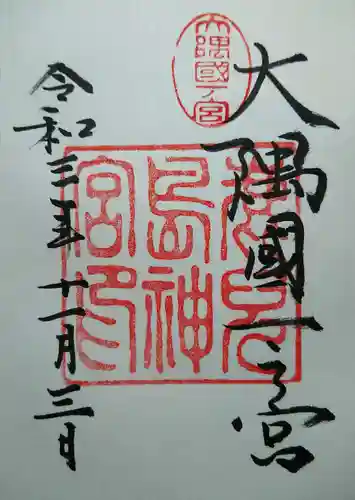 大隅國一之宮
大隅國一ノ宮
鹿児
島神
宮印
令和三年十一月三日